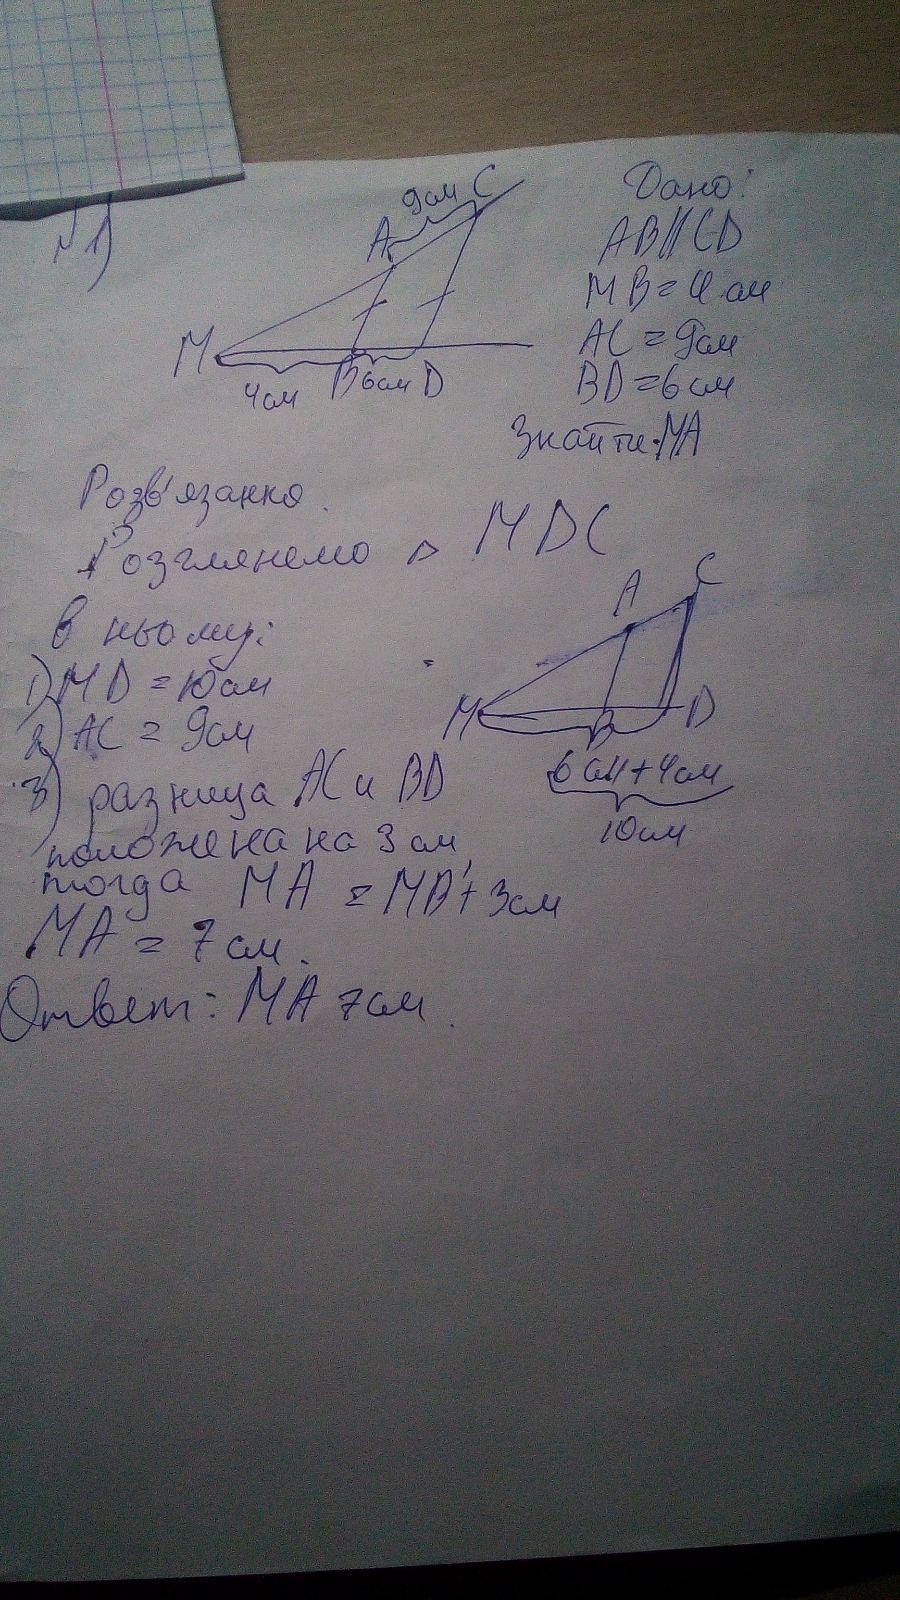 №1)
9см C
A
M
4см B 6см D
Дано:
AB||CD
MB = 4 см
AC = 9см
BD = 6см
Знайти: MA
Розв'язання.
Розглянемо ▷ MDC
В ньому:
1) MD = 10см
2) AC = 9см
3) разница AC и BD
положена на 3 см
тогда MA = MB + 3см
MA = 7см.
Ответ: MA 7см.
A C
M B D
6см+4см
10см